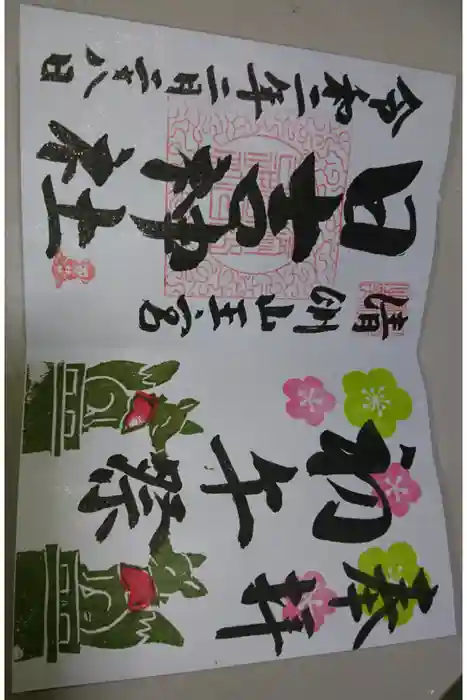 奉拝
初午祭
清洲山王宮
日吉神社
令和二年二月二十八日